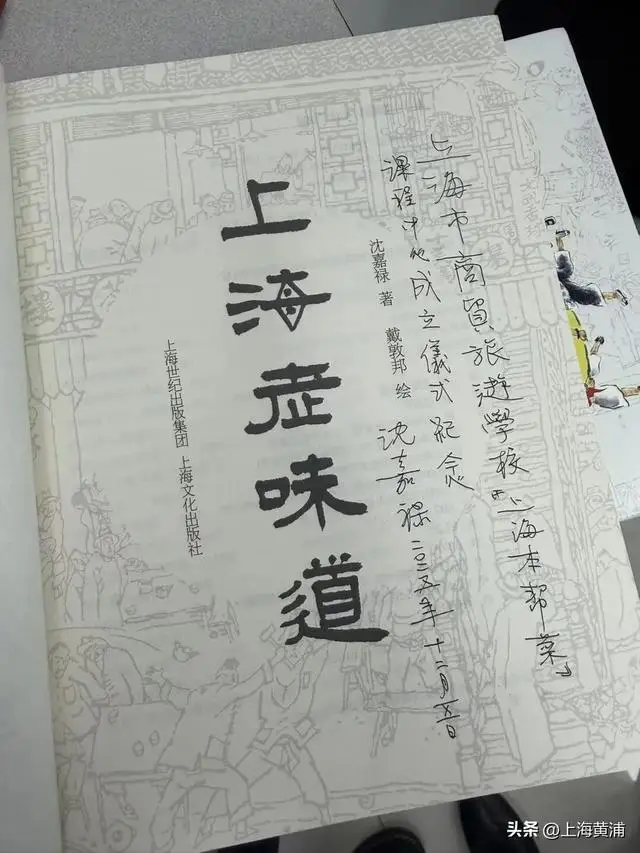 上海市商貿旅遊學校『上海本帮菜』
课程中心成立儀式紀念
沈嘉禄 二〇二五年十二月五日
沈嘉禄 著 戴敦邦 绘
上海老味道
上海世纪出版集团 上海文化出版社
头条 @上海黄浦